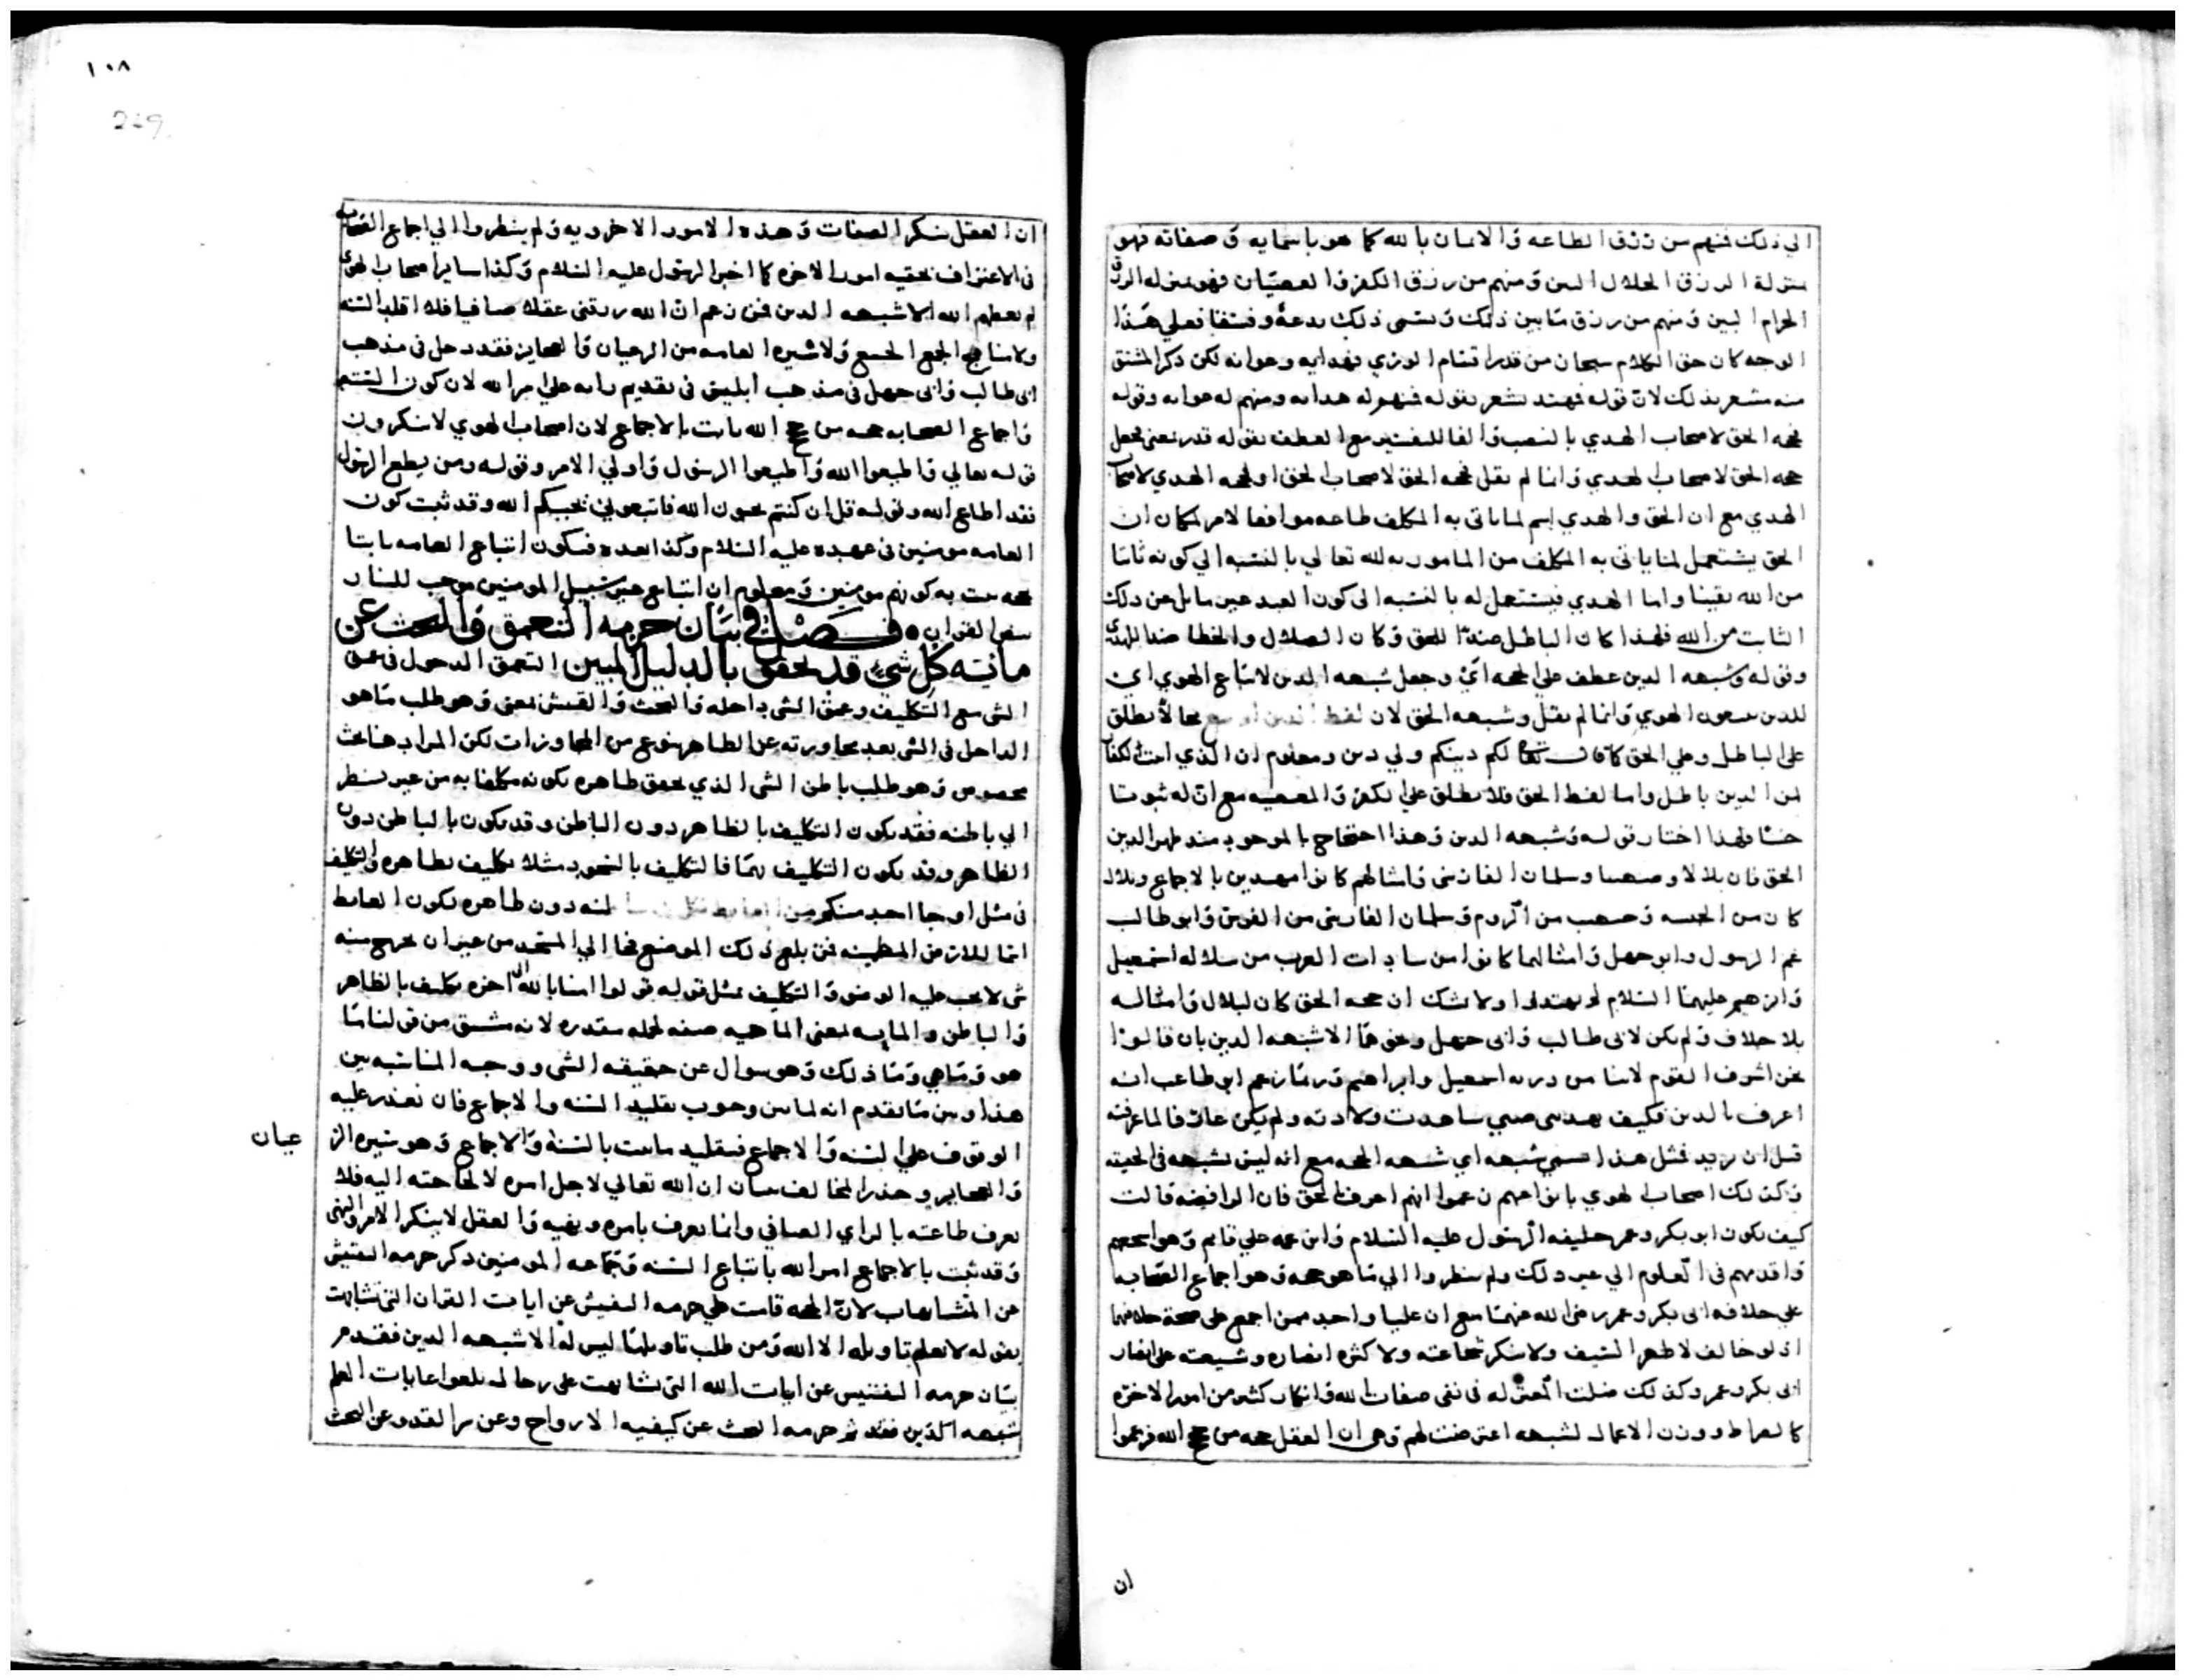 الي ذلك فمنهم من رزق الطاعه والايمان بالله كما هو باسمايه وصفاته فهو
بمنزلة الرزق الحلال البين ومنهم من رزق الكفر والعصيان فهو بمنزله الرزق
الحرام البين ومنهم من رزق ما بين ذلك ويسمى ذلك بدعة وفسقا فعلي هذا
الوجه كان حق الكلام سبحان من قدر اقسام الوري فهدايه وغوايه لكن ذكر المشتق
منه مشعر بذلك لان قوله فمهتد يشعر بقوله فمنهم له هدايه ومنهم له غوايه وقوله
فحجه الحق لاصحاب الهدي بالنصب والفا للتفسير مع العطف بقوله قدر يعني جعل
حجه الحق لاصحاب الهدي وانما لم يقل فحجه الحق لاصحاب الحق او فحجه الهدي لاصحاب
الهدي مع ان الحق والهدي اسم لما ياتي به المكلف طاعه موافقا لامر لمكان ان
الحق يستعمل لما ياتي به المكلف من المامور به لله تعالي بالنسبه الي كونه ثابتا
من الله يقينا واما الهدي فيستعمل له بالنسبه الى كون العبد غير مايل عن ذلك
الثابت من الله فلهذا كان الباطل ضدا للحق وكان الضلال والخطا ضدا للهدي
وقوله وشبهه الدين عطف علي الحجه اي وجعل شبهه الدين لاتباع الهوي اي
للذين يتبعون الهوي وانما لم يقل وشبهه الحق لان لفظ الدين يطلق
علي الباطل وعلي الحق كما قال تعالى لكم دينكم ولي دين ومعلوم ان الذي للكفار
من الدين باطل واما لفظ الحق فلا يطلق علي الكفر والمعصيه مع ان له ثبوتا
حسا فلهذا اختار قوله وشبهه الدين وهذا احتجاج بالموجود منذ ظهر الدين
الحق فان بلالا وصهيبا وسلمان الفارسي وامثالهم كانوا مهتدين بالاجماع وبلال
كان من الحبشه وصهيب من الروم وسلمان الفارسي من الفرس وابو طالب
عم الرسول وابو جهل وامثالهما كانوا من سادات العرب من سلاله اسمعيل
وابرهيم عليهما السلام لم يهتدوا ولا شك ان حجه الحق كان لبلال وامثاله
بلا خلاف ولم يكن لابي طالب وابي جهل ونحوهما الا شبهه الدين بان قالوا
نحن اشرف القوم لاننا من ذريه اسمعيل وابراهيم وربما زعم ابو طالب انه
اعرف بالدين فكيف يهديني صبي شاهدت ولادته ولم يكن عارفا لما عرفته
قبل ان يريد فمثل هذا يسمي شبهه اي شبهه الحجه مع انه ليس بشبهه في الحقيقه
وكذلك اصحاب الهوي بانواعهم زعموا انهم اعرف بالحق فان الرافضه قالت
كيف يكون ابو بكر وعمر خليفه الرسول عليه السلام وابن عمه علي قايم وهو اشجعهم
واقدمهم في العلوم الي غير ذلك ولم ينظروا الي ما هو حجه وهو اجماع الصحابه
علي خلافه ابي بكر وعمر رضي الله عنهما مع ان عليا واحد ممن اجمع على صحة خلافتهما
اذ لو خالف لاظهر السيف ولا ينكر شجاعته ولا كثره انصاره وشيعته على انصار
ابي بكر وعمر وكذلك ضلت المعتزله في نفي صفات الله وانكار كثير من امور الاخره
كالصراط ووزن الاعمال لشبهه اعترضت لهم وهي ان العقل حجه من حجج الله فزعموا
ان
١٠٨
229
ان العقل ينكر الصفات وهذه الامور الاخرويه ولم ينظروا الي اجماع الصحابه
في الاعتراف بحقيه امور الاخره كما اخبر الرسول عليه السلام وكذا ساير اصحاب الهوي
لم يعطهم الله الا شبهه الدين فمن زعم ان الله رزقني عقلا صافيا فلا اقلد السنه
ولا مناهج الجمع ولا سيره العامه من الرعيان والعجايز فقد دخل في مذهب
ابي طالب وابي جهل في مذهب ابليس في تقديم رايه علي امر الله لان كون السنه
واجماع الصحابه حجه من حجج الله ثابت بالاجماع لان اصحاب الهوي لا ينكرون
قوله تعالي واطيعوا الله واطيعوا الرسول واولي الامر وقوله ومن يطع الرسول
فقد اطاع الله وقوله قل ان كنتم تحبون الله فاتبعوني يحببكم الله وقد ثبت كون
العامه مومنين في عهده عليه السلام وكذا بعده فيكون اتباع العامه ثابتا
حجه ثبت به كونهم مومنين ومعلوم ان اتباع غير سبيل المومنين موجب للنار
بنص القران فصل في بيان حرمه التعمق والبحث عن
مائيه كل شيء قد تحقق بالدليل المبين التعمق الدخول في عمق
الشي مع التكليف وعمق الشي داخله والبحث والتفتيش بمعني وهو طلب ما هو
الداخل في الشي بعد مجاورته عن الظاهر بنوع من المجاوزات لكن المراد هنا بحث
مخصوص وهو طلب باطن الشي الذي تحقق ظاهره بكونه مكلفا به من غير نظر
الي باطنه فقد يكون التكليف بالظاهر دون الباطن وقد يكون بالباطن دون
الظاهر وقد يكون التكليف بهما فالتكليف بالسجود مثلا تكليف بظاهره والتكليف
في مثل او جا احد منكم من الغايط تكليف بباطنه دون ظاهره لكون الغايط
اسما للارض المطمينه فمن بلغ ذلك الموضع فجا الي المسجد من غير ان يخرج منه
شي لا يجب عليه الوضو والتكليف بمثل قوله قولوا امنا بالله الى اخره تكليف بالظاهر
والباطن والمائيه بمعني الماهيه صفه لجمله مقدره لانه مشتق من قولنا ما
هو وما هي وما ذلك وهو سوال عن حقيقه الشي ووجه المناسبه بين
هذا وبين ما تقدم انه لما بين وجوب تقليد السنه والاجماع فان تعذر عليه
الوقوف علي السنه والاجماع فيقليد ما ثبت بالسنه والاجماع وهو سيره الر
عيان
والعجايز وحذر المخالف ببيان ان الله تعالي لاجل امره لا لحاجته اليه فلا
يعرف طاعته بالراي الصافي وانما يعرف بامره ونهيه والعقل لا ينكر الامر والنهي
وقد ثبت بالاجماع امر الله باتباع السنه وجماعه المومنين ذكر حرمه التفتيش
عن المتشابهات لان الحجه قامت علي حرمه التفتيش عن ايات القران التي تشابهت
بقوله لا يعلم تاويله الا الله ومن طلب تاويلها ليس له الا شبهه الدين فقدم
بيان حرمه التفتيش عن ايات الله التي تشابهت على رجال بلغوا غايات العلم
شبهه الدين فقد ثم حرمه البحث عن كيفيه الارواح وعن سر القدر وعن البحث